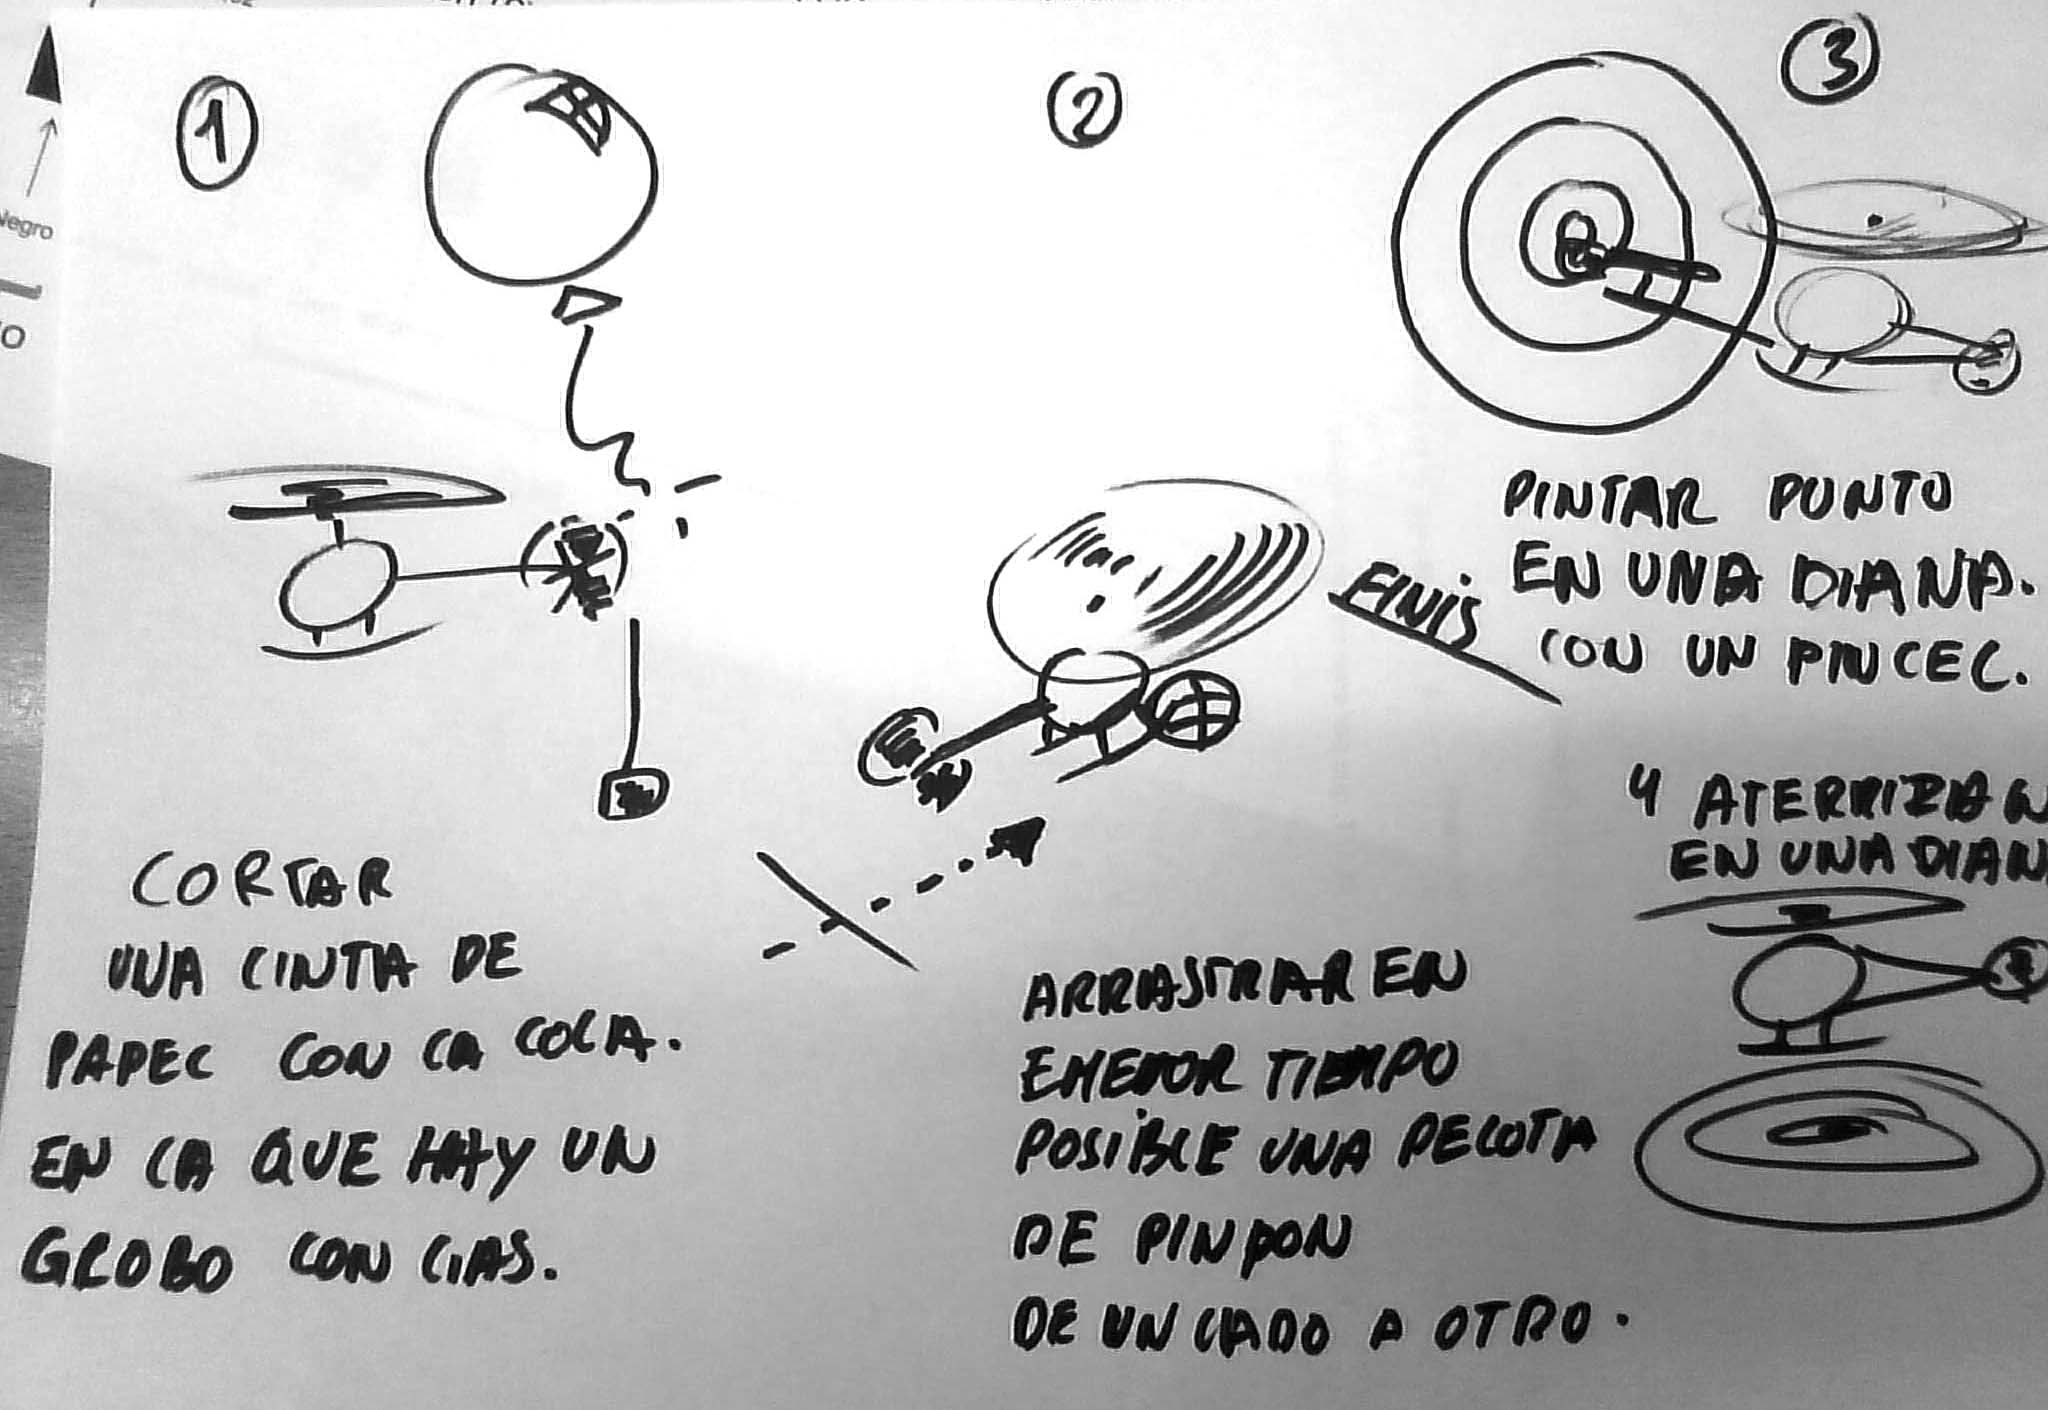 1
CORTAR
UNA CINTA DE
PAPEL CON LA COLA.
EN LA QUE HAY UN
GLOBO CON GAS.
2
FINIS
ARRASTRAR EN
EMENOR TIEMPO
POSIBLE UNA PELOTA
DE PINPON
DE UN LADO A OTRO.
3
PINTAR PUNTO
EN UNA DIANA.
CON UN PINCEL.
4 ATERRIZA
EN UNA DIAN
Negro